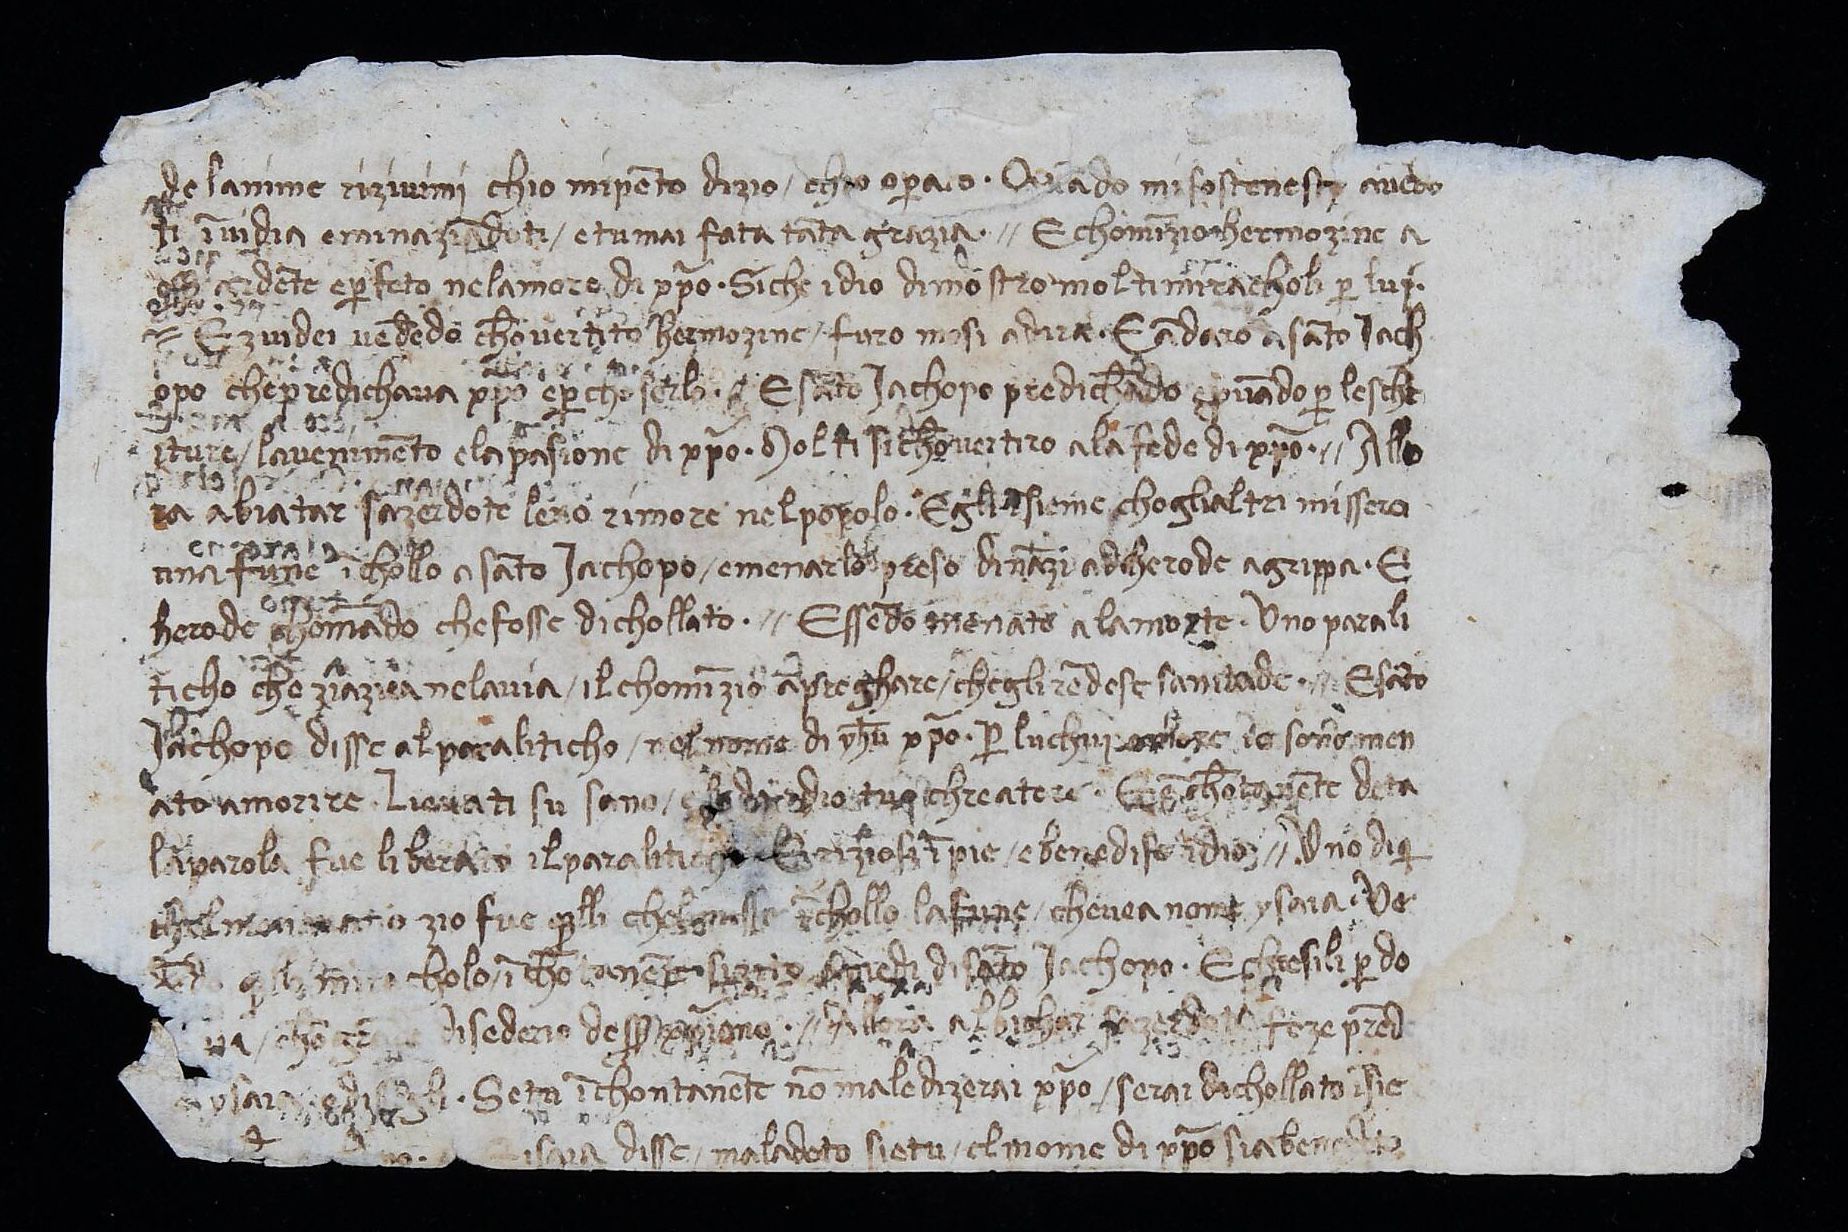 de lanime rizivimi chio mipento dizio / chio operato. Quado mi sostenesti avedo
ti ĩvidia eminaziãdoti / etumai fata tãta grazia. // E chomĩzio hermozine a
ardente eperfeto nelamore di xp̃o. Siche idio dimostro molti miracholi p̱ lui.
// Ezuidei vedẽdo chõvertito hermozine / furo mosi adira. Eãdaro a sãto Jach
opo chepredichava xp̃o ep̱che serlo. // E sãto Jachopo predichãdo epvãdo p̱ leschr
iture / lavenimẽto elapasione di xp̃o. Molti si chõvertiro ala fede di xp̃o. // Allo
ra abiatar sazerdote levo rimore nelpopolo. Egli ĩsieme choglialtri missero
una fune ĩ chollo a sãto Jachopo / emenarlo preso dinãzi adherode agrippa. E
herode chomãdo chefosse dichollato. // Essẽdo menato alamorte. Uno parali
ticho che ziaziva nelavia / il chomĩzio a preghare / chegli rẽdese sanitade. // Esãto
Jachopo disse alparaliticho / nel nome di yhũ xp̃o. P̱ luchui amore io sono men
ato amorire. Lievati su sano / e lodi idio tuo chreatore. E ĩchõtanẽte deta
laparola fue liberato ilparaliticho. Eriziosi ĩ pie / ebenedise idio // Uno di q̃
zio fue q̃lli chelmisse ĩ chollo lafune / cheuea nome ysaia. Ve
dẽdo q̃llo miracholo / ĩchõtanẽte sizito apiedi di sãto Jachopo. E chiesili p̱do
disederio desser xp̃iano. // Allora albithar sazerdote feze prẽd
ysaia edisegli. Setu ĩchontanẽte nõ maledizerai xp̃o / serai dichollato ĩsie
isaia disse / maladeto sietu / elnome di xp̃o siabenedeto